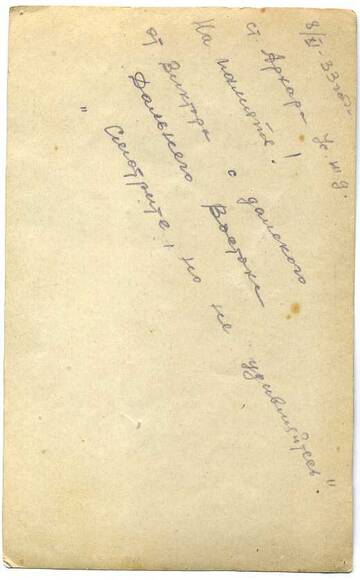 8/XI-33 года
ст Архара Ус.ж.д.
На память!
от Виктора с далекого
Дальнего Востока
"Смотрите, но не удивляйтесь"